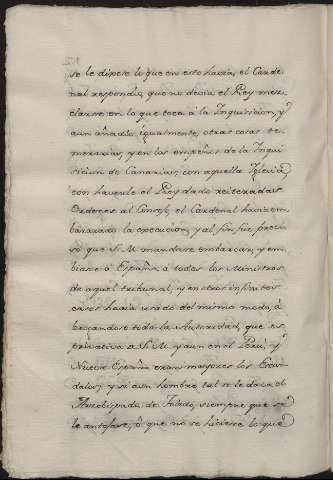 se le dixese lo que en esto havia, el Carde
nal respondio, que no devia el Rey mez
clarse en lo que toca á la Inquisicion, y
aun añadio, igualmente, otras cosas te
merarias, y en los empeños de la Inqui
sicion de Canarias, con aquella Iglesia
con haverle el Rey dado reiteradas
Ordenes al Consejo, el Cardenal havia em
barazado la execucion, y al fin fue preci
so que S.M. mandase embarcar, y em
biase á España á todos los Ministros
de aquel tribunal, y en otros infinitos
casos havia usado del mismo modo, á
brogandose toda la Authoridad, que es
privativa a S.M. y aun en el Perú, y
Nueva España eran mayores los Escan
dalos, y si aun hombre tal se le dava el
Arzobispado de Toledo, siempre que se
le antojase, ó que no se hiciese lo que